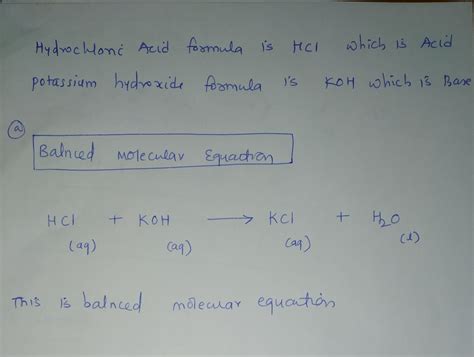 Hydrochloric Acid formula is HCl which is Acid
potassium hydroxide formula is KOH which is Base
(a)
Balnced molecular Equaction
HCl + KOH → KCl + H₂O
(aq) (aq) (aq) (l)
This is balnced molecular equation